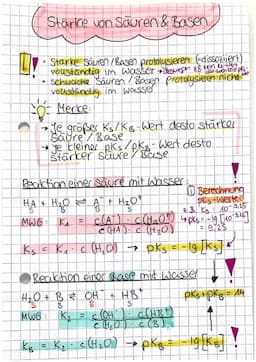 Stärke von Säuren & Basen
! Starke Säuren/Basen protolysieren (=dissoziiert)
vollständig im Wasser
schwache Säuren/Basen protolysieren nicht
vollständig im Wasser
Merke:
→ Je größer Ks/KB-Wert desto stärker
Säure/Base
→ Je kleiner pKs/pKB-Wert desto
stärker Säure/Base
Reaktion einer Säure mit Wasser:
HA + H2O ⇌ A⁻ + H3O⁺
S B B S
MWG: K1 = c(A⁻) · c(H3O⁺)
c(HA) · c(H2O)
Ks = K1 · c(H2O) → pKs = -lg[Ks]
Berechnung
pKs-Werte:
= 9,25
Reaktion einer Base mit Wasser
H2O + B ⇌ OH⁻ + HB⁺
S B B S
pKs + pKB = 14
MWG: K2 = c(OH⁻) · c(HB⁺)
c(H2O) · c(B)
KB = K2 · c(H2O) → pKB = -lg[KB]